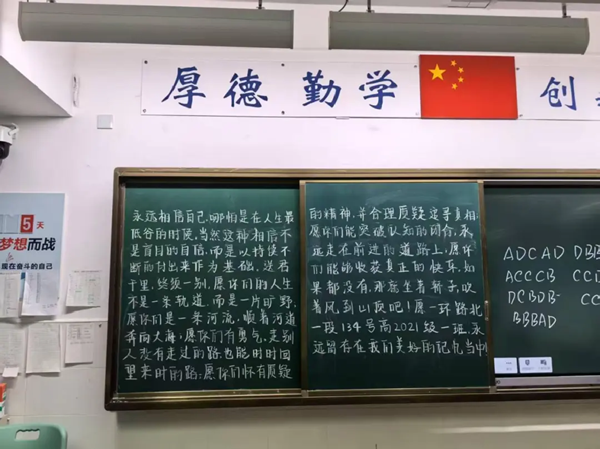 厚德 勤学
创
5天
梦想而战
永远相信自己,哪怕是在人生最
低谷的时候,当然这种相信不
是盲目的自信,而是以持续不
断的付出来作为基础。送君
千里,终须一别,愿你们的人生
不是一条轨道,而是一片旷野,
愿你们是一条河流,顺着河道
奔向大海;愿你们有勇气,走别
人没有走过的路,也能时时回
望来时的路;愿你们怀有质疑
的精神,并合理质疑追寻真相;
愿你们能突破认知的闭合,永
远走在前进的道路上,愿你
们能够收获真正的快乐,如
果都没有,那就坐着轿子,吹
着风到山顶吧!愿一环路北
一段134号高2021级一班,永
远留存在我们美好的记忆当中!
ADCAD DBB
ACCCB CC
DCBDB- C
BBBAD